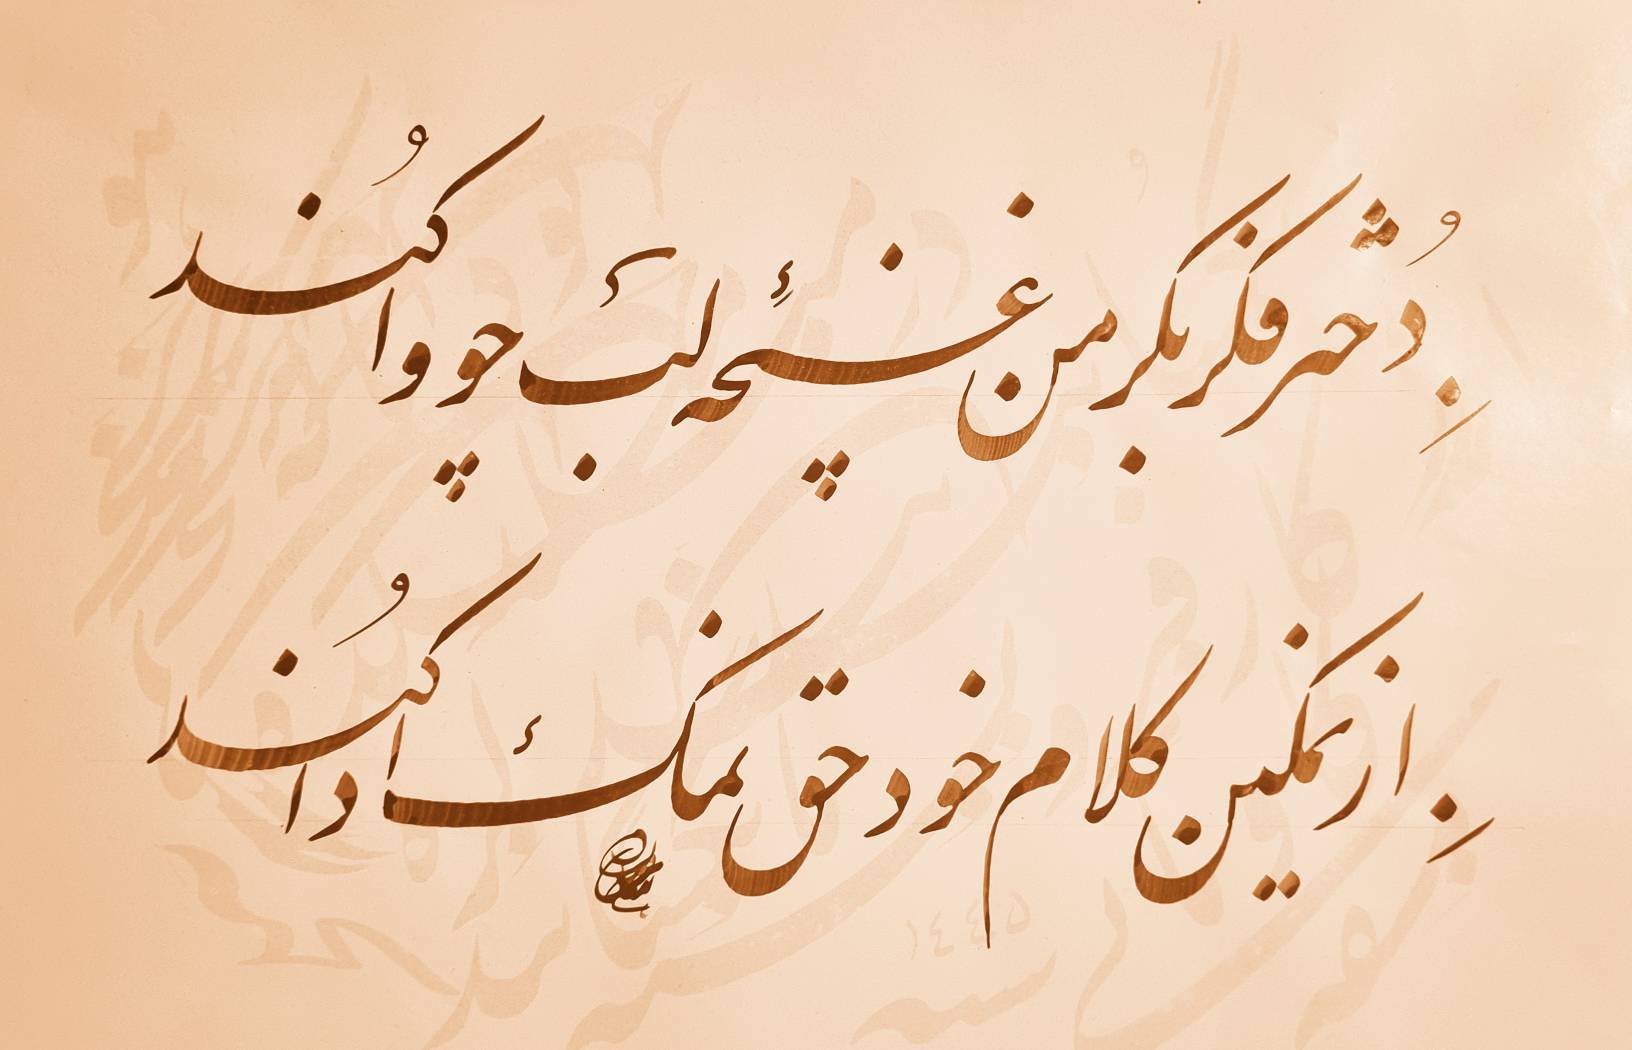 دُختر فکر بکر من غنچۀ لب چو وا کُند
از نمکین کلام خود حق نمک ادا کُند
١٤٤٥